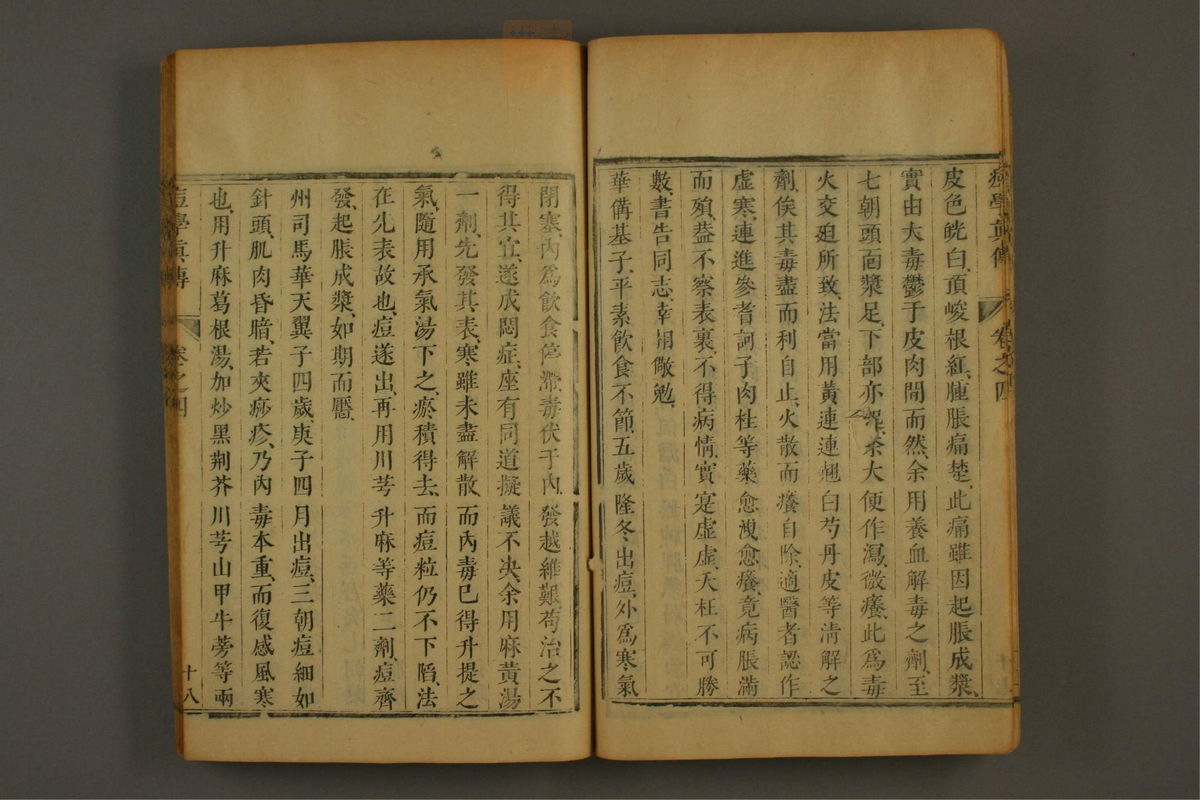 痘學眞傳 卷之四
皮色皝白、頂峻根紅、腫脹痛楚、此痛雖因起脹成漿、
實由大毒鬱于皮肉間而然、余用養血解毒之劑、至
七朝頭面漿足、下部亦起、余大便作瀉、微癢、此爲毒
火交廹所致、法當用黃連連翹白芍丹皮等淸解之
劑、俟其毒盡而利自止、火散而癢自除、適醫者認作
虛寒、連進參耆訶子肉桂等藥、愈洩愈癢、竟病脹滿
而殞、葢不察表裏、不得病情、實寔虛虛、夭枉不可勝
數、書告同志、幸相儆勉、
華儔基子、平素飮食不節、五歲隆冬出痘、外爲寒氣
閉塞、內爲飮食停滯、毒伏于內、發越維艱、苟治之不
得其宜、遂成悶症、座有同道擬議不决、余用麻黃湯
一劑、先發其表、寒雖未盡解散、而內毒已得升提之
氣、隨用承氣湯下之、瘀積得去、而痘粒仍不下陷、法
在先表故也、痘遂出、再用川芎升麻等藥二劑、痘齊
發起脹成漿、如期而靨、
州司馬華天翼子四歲、庚子四月出痘、三朝痘細如
針頭、肌肉昏暗、若夾痧疹、乃內毒本重、而復感風寒
也、用升麻葛根湯、加炒黑荆芥川芎山甲牛蒡等兩
痘學眞傳 卷之四 十八